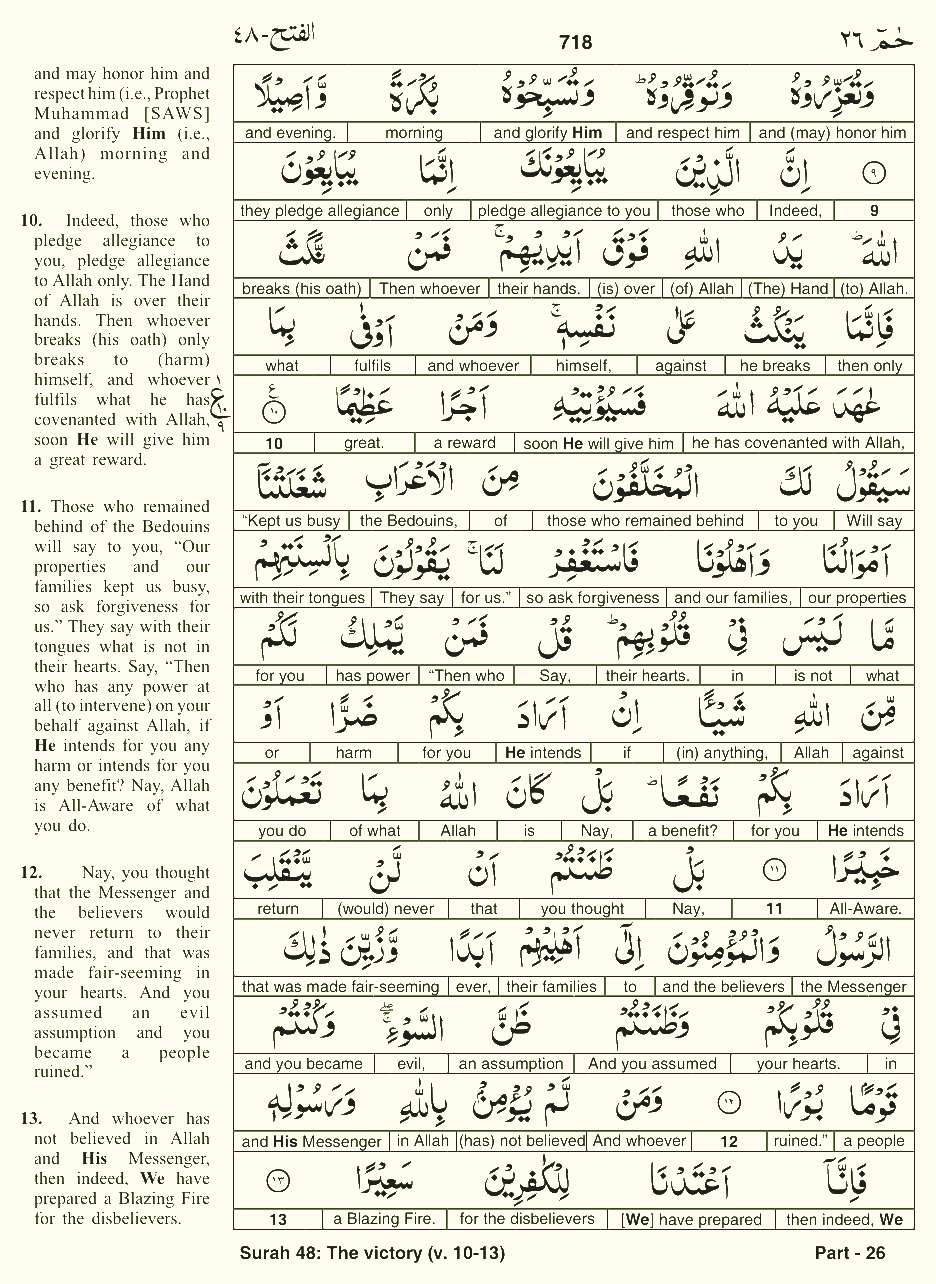 الفتح-٤٨ 718 حٰمٓ ٢٦
and may honor him and
respect him (i.e., Prophet
Muhammad [SAWS]
and glorify Him (i.e.,
Allah) morning and
evening.
10. Indeed, those who
pledge allegiance to
you, pledge allegiance
to Allah only. The Hand
of Allah is over their
hands. Then whoever
breaks (his oath) only
breaks to (harm)
himself, and whoever
fulfils what he has
covenanted with Allah,
soon He will give him
a great reward.
11. Those who remained
behind of the Bedouins
will say to you, “Our
properties and our
families kept us busy,
so ask forgiveness for
us.” They say with their
tongues what is not in
their hearts. Say, “Then
who has any power at
all (to intervene) on your
behalf against Allah, if
He intends for you any
harm or intends for you
any benefit? Nay, Allah
is All-Aware of what
you do.
12. Nay, you thought
that the Messenger and
the believers would
never return to their
families, and that was
made fair-seeming in
your hearts. And you
assumed an evil
assumption and you
became a people
ruined.”
13. And whoever has
not believed in Allah
and His Messenger,
then indeed, We have
prepared a Blazing Fire
for the disbelievers.
١
ع
١٠
٩
وَتُعَزِّرُوْهُ وَتُوَقِّرُوْهُ ؕ وَتُسَبِّحُوْهُ بُكْرَةً وَّاَصِيْلًا
and evening. morning and glorify Him and respect him and (may) honor him
٩ اِنَّ الَّذِيْنَ يُبَايِعُوْنَكَ اِنَّمَا يُبَايِعُوْنَ
they pledge allegiance only pledge allegiance to you those who Indeed, 9
اللّٰهَ ؕ يَدُ اللّٰهِ فَوْقَ اَيْدِيْهِمْ ۚ فَمَنْ نَّكَثَ
breaks (his oath) Then whoever their hands. (is) over (of) Allah (The) Hand (to) Allah.
فَاِنَّمَا يَنْكُثُ عَلٰى نَفْسِهٖ ۚ وَمَنْ اَوْفٰى بِمَا
what fulfils and whoever himself, against he breaks then only
عٰهَدَ عَلَيْهُ اللّٰهَ فَسَيُؤْتِيْهِ اَجْرًا عَظِيْمًا ع ١٠
10 great. a reward soon He will give him he has covenanted with Allah,
سَيَقُوْلُ لَكَ الْمُخَلَّفُوْنَ مِنَ الْاَعْرَابِ شَغَلَتْنَاۤ
“Kept us busy the Bedouins, of those who remained behind to you Will say
اَمْوَالُنَا وَاَهْلُوْنَا فَاسْتَغْفِرْ لَنَا ۚ يَقُوْلُوْنَ بِاَلْسِنَتِهِمْ
with their tongues They say for us.” so ask forgiveness and our families, our properties
مَّا لَيْسَ فِيْ قُلُوْبِهِمْ ؕ قُلْ فَمَنْ يَّمْلِكُ لَكُمْ
for you has power “Then who Say, their hearts. in is not what
مِّنَ اللّٰهِ شَيْـًٔا اِنْ اَرَادَ بِكُمْ ضَرًّا اَوْ
or harm for you He intends if (in) anything, Allah against
اَرَادَ بِكُمْ نَفْعًا ؕ بَلْ كَانَ اللّٰهُ بِمَا تَعْمَلُوْنَ
you do of what Allah is Nay, a benefit? for you He intends
خَبِيْرًا ١١ بَلْ ظَنَنْتُمْ اَنْ لَّنْ يَّنْقَلِبَ
return (would) never that you thought Nay, 11 All-Aware.
الرَّسُوْلُ وَالْمُؤْمِنُوْنَ اِلٰۤى اَهْلِيْهِمْ اَبَدًا وَّزُيِّنَ ذٰلِكَ
that was made fair-seeming ever, their families to and the believers the Messenger
فِيْ قُلُوْبِكُمْ وَظَنَنْتُمْ ظَنَّ السَّوْءِ ۖۚ وَكُنْتُمْ
and you became evil, an assumption And you assumed your hearts. in
قَوْمًا بُوْرًا ١٢ وَمَنْ لَّمْ يُؤْمِنْ بِاللّٰهِ وَرَسُوْلِهٖ
and His Messenger in Allah (has) not believed And whoever 12 ruined.” a people
فَاِنَّاۤ اَعْتَدْنَا لِلْكٰفِرِيْنَ سَعِيْرًا ١٣
13 a Blazing Fire. for the disbelievers [We] have prepared then indeed, We
Surah 48: The victory (v. 10-13) Part - 26